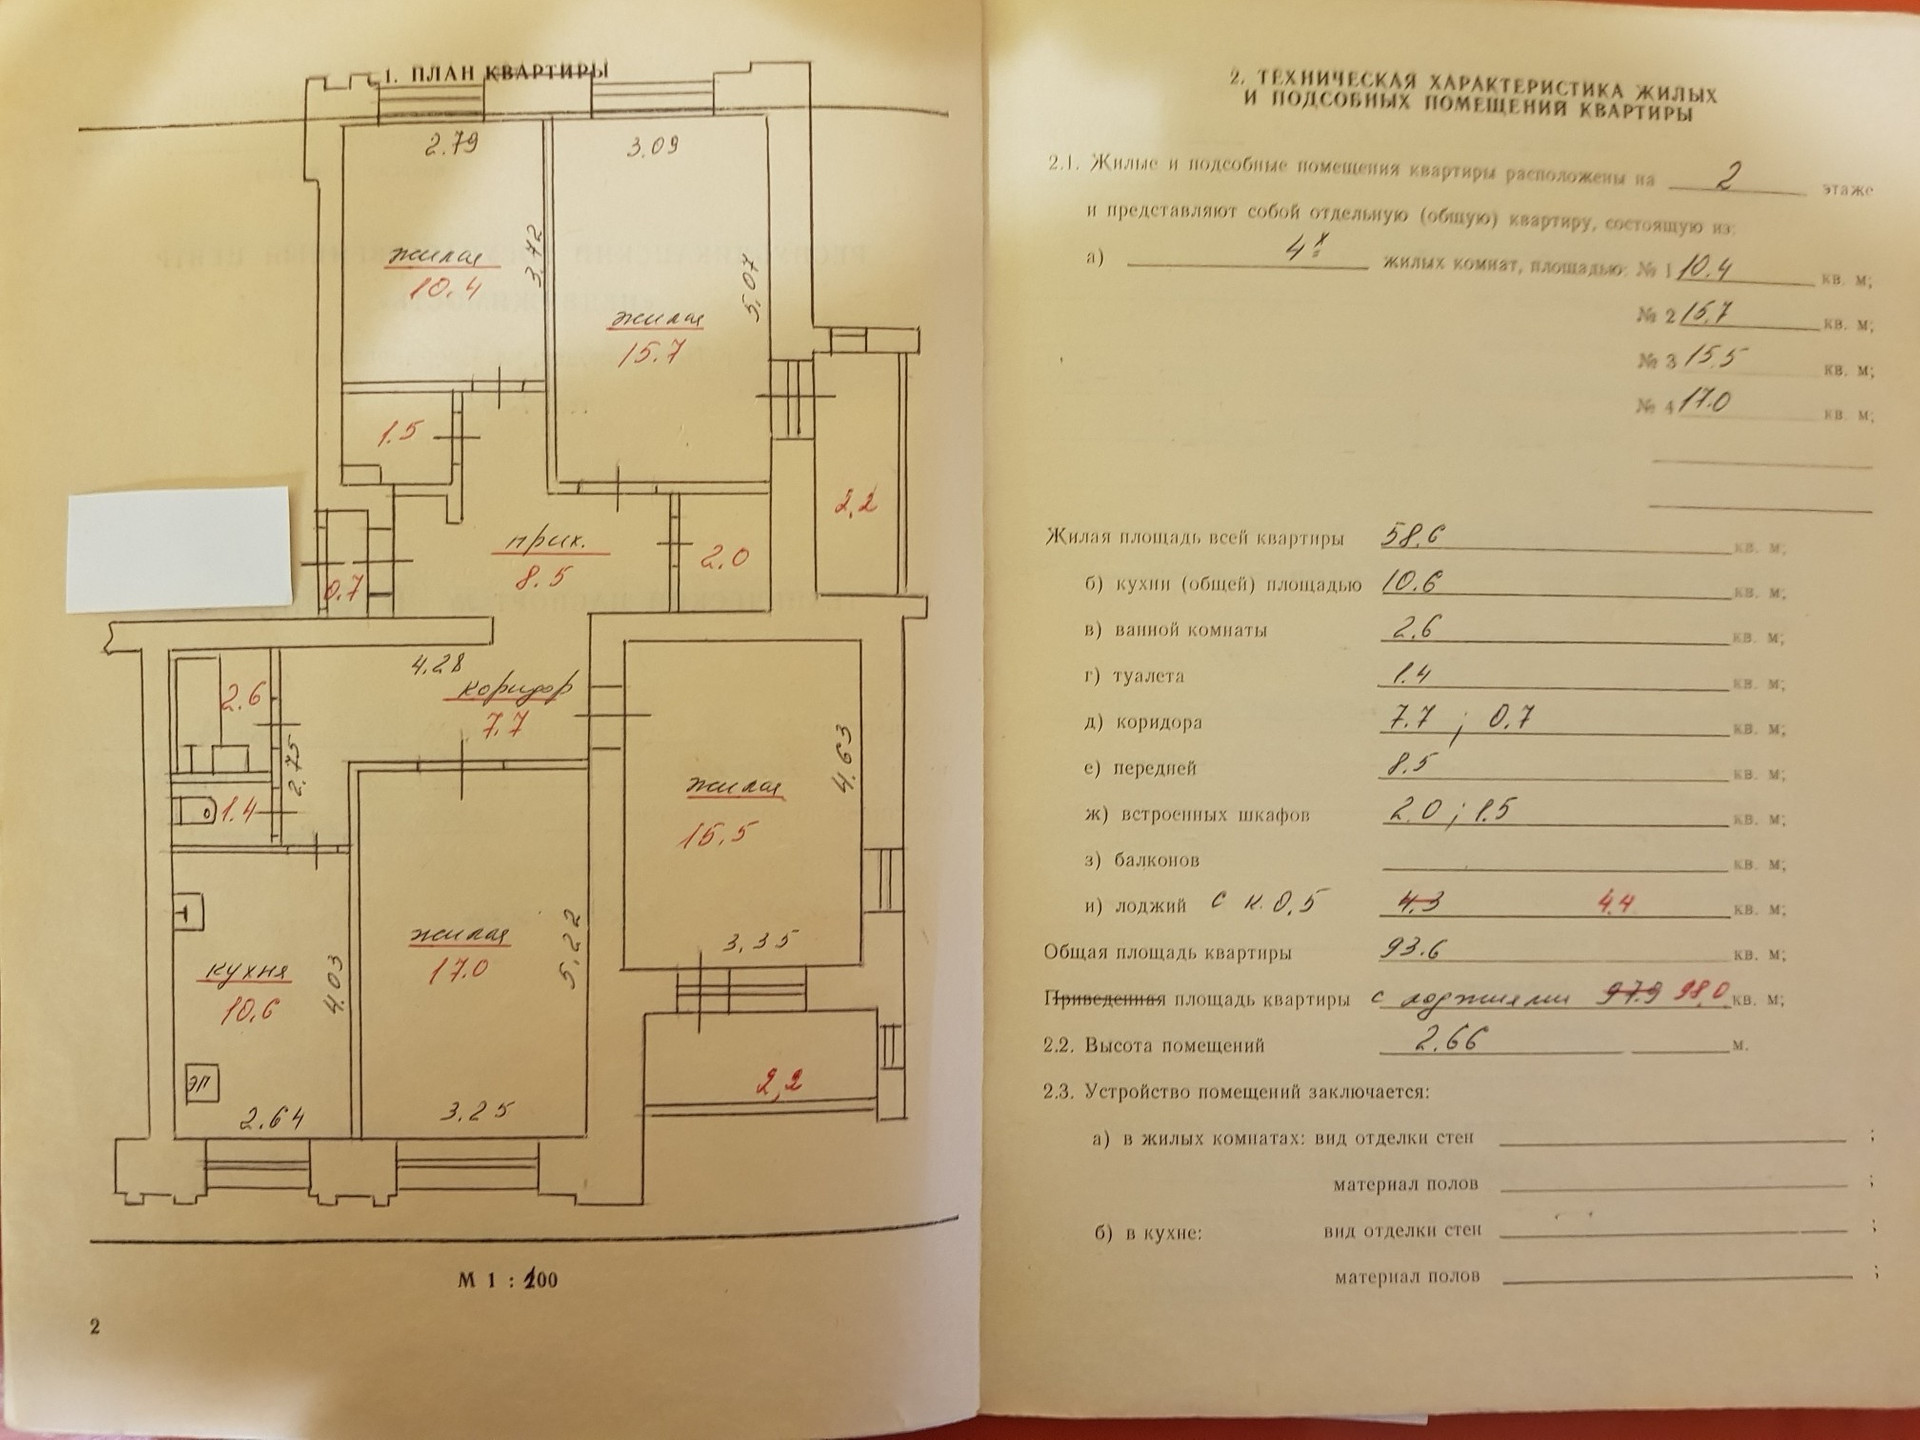 1. ПЛАН КВАРТИРЫ
2.79
3.09
3.72
5.07
жилая
10.4
жилая
15.7
1.5
2,2
прих.
8.5
2.0
0.7
4.28
коридор
7.7
2.6
2.75
4.63
1.4
жилая
15,5
3,35
кухня
10,6
4.03
жилая
17.0
5,22
ЭП
2.64
3.25
2,2
М 1 : 100
2
2. ТЕХНИЧЕСКАЯ ХАРАКТЕРИСТИКА ЖИЛЫХ
И ПОДСОБНЫХ ПОМЕЩЕНИЙ КВАРТИРЫ
2.1. Жилые и подсобные помещения квартиры расположены на 2 этаже
и представляют собой отдельную (общую) квартиру, состоящую из:
а) 4х жилых комнат, площадью: № 1 10.4 кв. м;
№ 2 15.7 кв. м;
№ 3 15.5 кв. м;
№ 4 17.0 кв. м;
Жилая площадь всей квартиры 58.6 кв. м;
б) кухни (общей) площадью 10.6 кв. м;
в) ванной комнаты 2.6 кв. м;
г) туалета 1.4 кв. м;
д) коридора 7.7 ; 0.7 кв. м;
е) передней 8.5 кв. м;
ж) встроенных шкафов 2.0 ; 1.5 кв. м;
з) балконов кв. м;
и) лоджий с к. 0,5 4.3 4.4 кв. м;
Общая площадь квартиры 93.6 кв. м;
Приведенная площадь квартиры с лоджиями 97.9 98,0 кв. м;
2.2. Высота помещений 2.66 м.
2.3. Устройство помещений заключается:
а) в жилых комнатах: вид отделки стен ;
материал полов ;
б) в кухне: вид отделки стен ;
материал полов ;